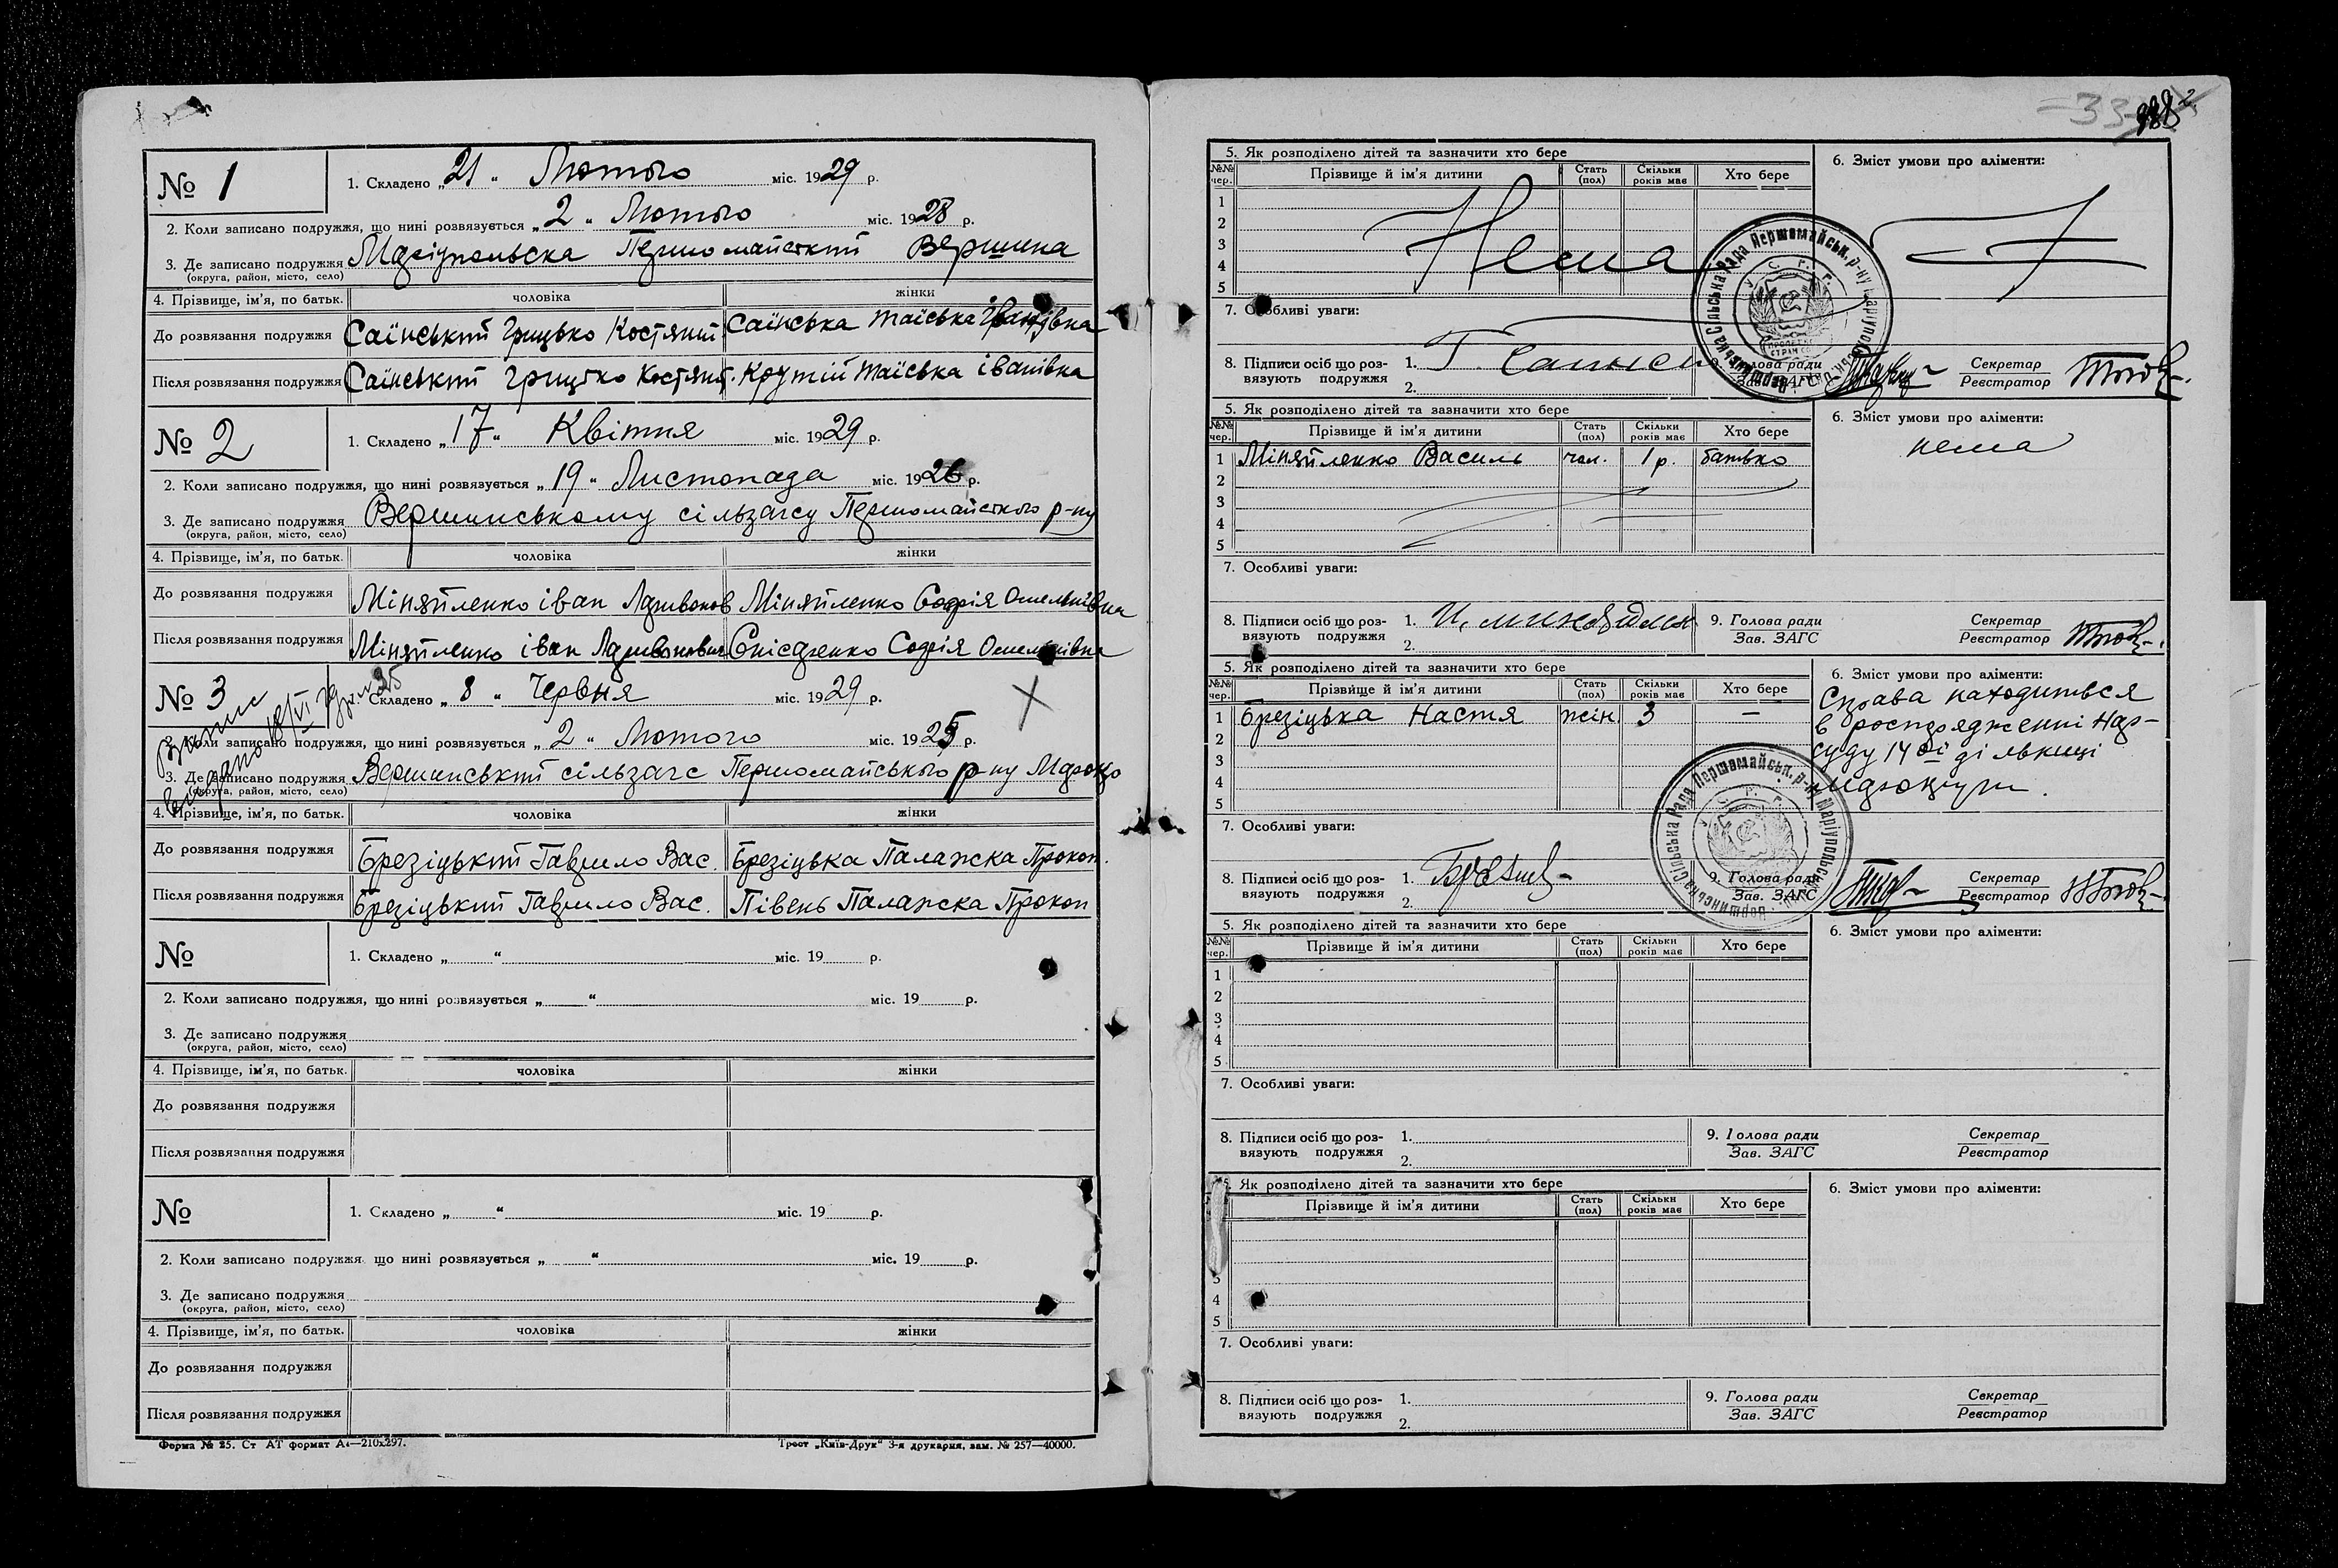 № 1
1. Складено „21“ Лютого міс. 1929 р.
2. Коли записано подружжя, що нині розвязується „2“ Лютого міс. 1928 р.
3. Де записано подружжя Маріупольска Першомайский Вершина
(округа, район, місто, село)
4. Прізвище, ім'я, по батьк. чоловіка жінки
До розвязання подружжя Саїнський Грицько Костянт. Саїнська Таїська Іванівна
Після розвязання подружжя Саїнський Грицько Костянт. Крутій Таїська іванівна
№ 2
1. Складено „17“ Квітня міс. 1929 р.
2. Коли записано подружжя, що нині розвязується „19“ Листопада міс. 1926 р.
3. Де записано подружжя Вершинському сільзагсу Першомайского р-ну
(округа, район, місто, село)
4. Прізвище, ім'я, по батьк. чоловіка жінки
До розвязання подружжя Міняйленко іван Міняйленко Софія Омельнівна
Після розвязання подружжя Міняйленко іван Софія
№ 3
1. Складено „8“ Червня міс. 1929 р.
2. Коли записано подружжя, що нині розвязується „2“ Лютого міс. 1925 р.
3. Де записано подружжя Вершинський сільзагс Першомайського р-ну
(округа, район, місто, село)
4. Прізвище, ім'я, по батьк. чоловіка жінки
До розвязання подружжя Брезіцький Гаврило Вас. Брезіцька Палажка Прокоп.
Після розвязання подружжя Брезіцький Гаврило Вас. Півень Палажка Прокоп
№
1. Складено „ “ міс. 19 р.
2. Коли записано подружжя, що нині розвязується „ “ міс. 19 р.
3. Де записано подружжя
(округа, район, місто, село)
4. Прізвище, ім'я, по батьк. чоловіка жінки
До розвязання подружжя
Після розвязання подружжя
№
1. Складено „ “ міс. 19 р.
2. Коли записано подружжя, що нині розвязується „ “ міс. 19 р.
3. Де записано подружжя
(округа, район, місто, село)
4. Прізвище, ім'я, по батьк. чоловіка жінки
До розвязання подружжя
Після розвязання подружжя
Форма № 25. Ст АТ формат А4—210х297. Трест „Київ-Друк“ 3-я друкарня, зам. № 257—40000.
5. Як розподілено дітей та зазначити хто бере
6. Зміст умови про аліменти:
№№ чер. Прізвище й ім'я дитини Стать (пол) Скільки років має Хто бере
1
2
3
4
5
Нема
7. Особливі уваги:
8. Підписи осіб що розвязують подружжя 1.
2.
Голова ради
Зав. ЗАГС
Секретар
Реєстратор
5. Як розподілено дітей та зазначити хто бере
6. Зміст умови про аліменти:
нема
№№ чер. Прізвище й ім'я дитини Стать (пол) Скільки років має Хто бере
1 Міняйленко Василь чол. 1 р. батько
2
3
4
5
7. Особливі уваги:
8. Підписи осіб що розвязують подружжя 1.
2.
9. Голова ради
Зав. ЗАГС
Секретар
Реєстратор
5. Як розподілено дітей та зазначити хто бере
6. Зміст умови про аліменти:
Справа находиться
в роспорядженні Нар-
суду 14ої дільниці
№№ чер. Прізвище й ім'я дитини Стать (пол) Скільки років має Хто бере
1 Брезіцька Настя жін. 3 —
2
3
4
5
7. Особливі уваги:
8. Підписи осіб що розвязують подружжя 1.
2.
9. Голова ради
Зав. ЗАГС
Секретар
Реєстратор
5. Як розподілено дітей та зазначити хто бере
6. Зміст умови про аліменти:
№№ чер. Прізвище й ім'я дитини Стать (пол) Скільки років має Хто бере
1
2
3
4
5
7. Особливі уваги:
8. Підписи осіб що розвязують подружжя 1.
2.
9. Голова ради
Зав. ЗАГС
Секретар
Реєстратор
Як розподілено дітей та зазначити хто бере
6. Зміст умови про аліменти:
Прізвище й ім'я дитини Стать (пол) Скільки років має Хто бере
3
4
5
7. Особливі уваги:
8. Підписи осіб що розвязують подружжя 1.
2.
9. Голова ради
Зав. ЗАГС
Секретар
Реєстратор